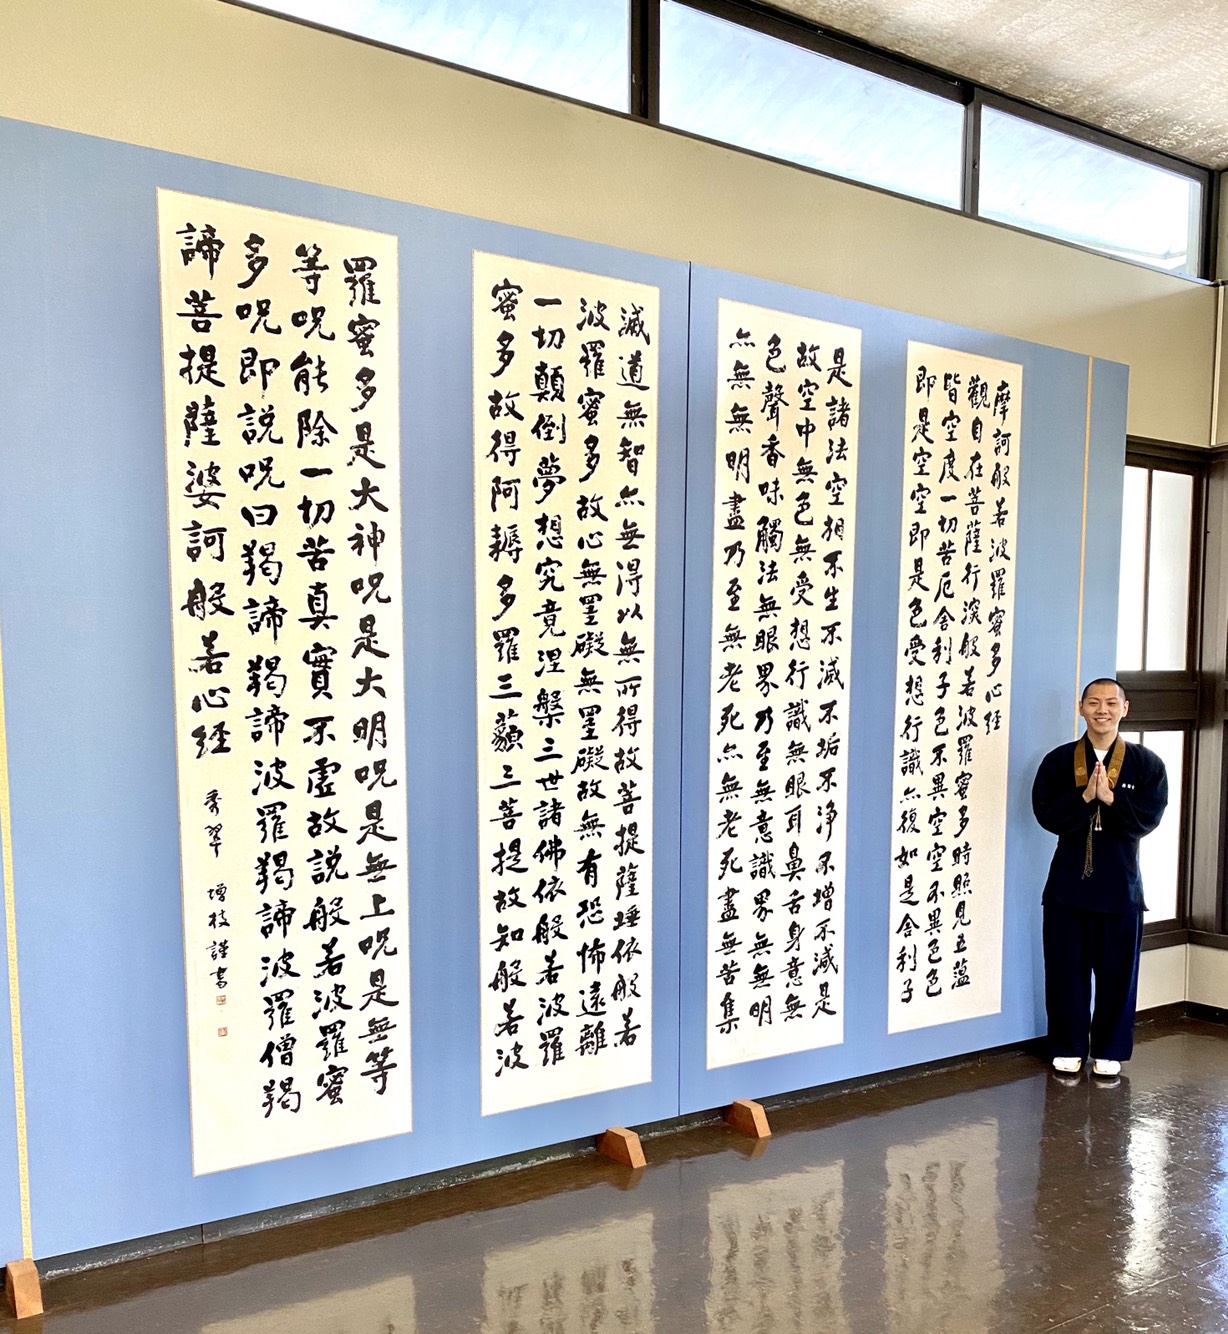 摩訶般若波羅蜜多心経
觀自在菩薩行深般若波羅蜜多時照見五蘊
皆空度一切苦厄舎利子色不異空空不異色色
即是空空即是色受想行識亦復如是舎利子
是諸法空相不生不滅不垢不浄不増不減是
故空中無色無受想行識無眼耳鼻舌身意無
色聲香味觸法無眼界乃至無意識界無無明
亦無無明盡乃至無老死亦無老死盡無苦集
滅道無智亦無得以無所得故菩提薩埵依般若
波羅蜜多故心無罣礙無罣礙故無有恐怖遠離
一切顛倒夢想究竟涅槃三世諸佛依般若波羅
蜜多故得阿耨多羅三藐三菩提故知般若波
羅蜜多是大神呪是大明呪是無上呪是無等
等呪能除一切苦真實不虚故説般若波羅蜜
多呪即説呪曰羯諦羯諦波羅羯諦波羅僧羯
諦菩提薩婆訶般若心経
秀翠 増枝謹書